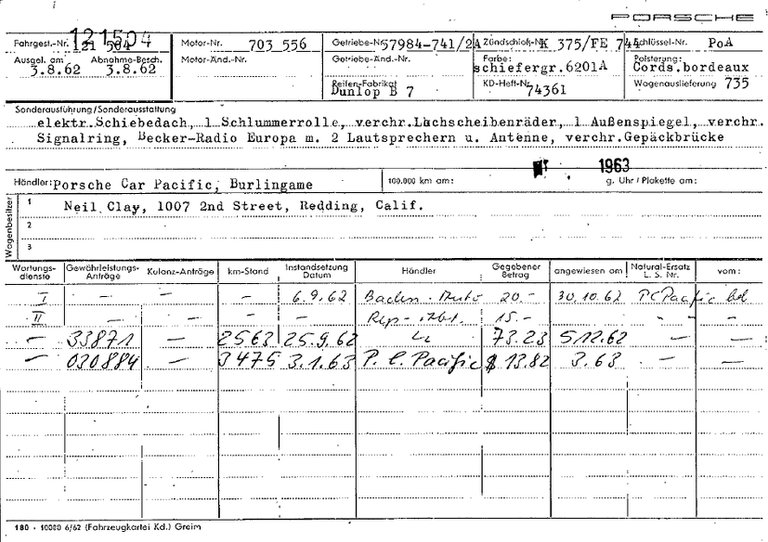 PORSCHE
Fahrgest.-Nr. 121 504 121504 Motor-Nr. 703 556 Getriebe-Nr. 57984-741/2A Zündschloß-Nr. K 375/FE 744 Schlüssel-Nr. PoA
Ausgel. am Abnahme-Besch. Motor-Änd.-Nr. Getriebe-Änd.-Nr. Farbe: Polsterung:
3.8.62 3.8.62 schiefergr.6201A Cords.bordeaux
Reifen-Fabrikat Dunlop B 7 KD-Heft-Nr. 74361 Wagenauslieferung 735
Sonderausführung/Sonderausstattung
elektr.Schiebedach, 1 Schlummerrolle, verchr.Lochscheibenräder, 1 Außenspiegel, verchr.
Signalring, Becker-Radio Europa m. 2 Lautsprechern u. Antenne, verchr.Gepäckbrücke
1963
Händler: Porsche Car Pacific, Burlingame 100.000 km am: g. Uhr / Plakette am:
Wagenbesitzer
1 Neil Clay, 1007 2nd Street, Redding, Calif.
2
3
Wartungsdienste Gewährleistungs-Anträge Kulanz-Anträge km-Stand Instandsetzung Datum Händler Gegebener Betrag angewiesen am Natural-Ersatz L. S. Nr. vom:
I - - - 6.9.62 20.- 30.10.62 PC Pacific
II - - - - 15.- - - -
- 33871 - 2563 25.9.62 73.23 5.12.62 - -
- 030884 - 3475 3.1.63 P. C. Pacific $ 13.82 3.63 - -
180 · 10000 6/62 (Fahrzeugkartei Kd.) Greim